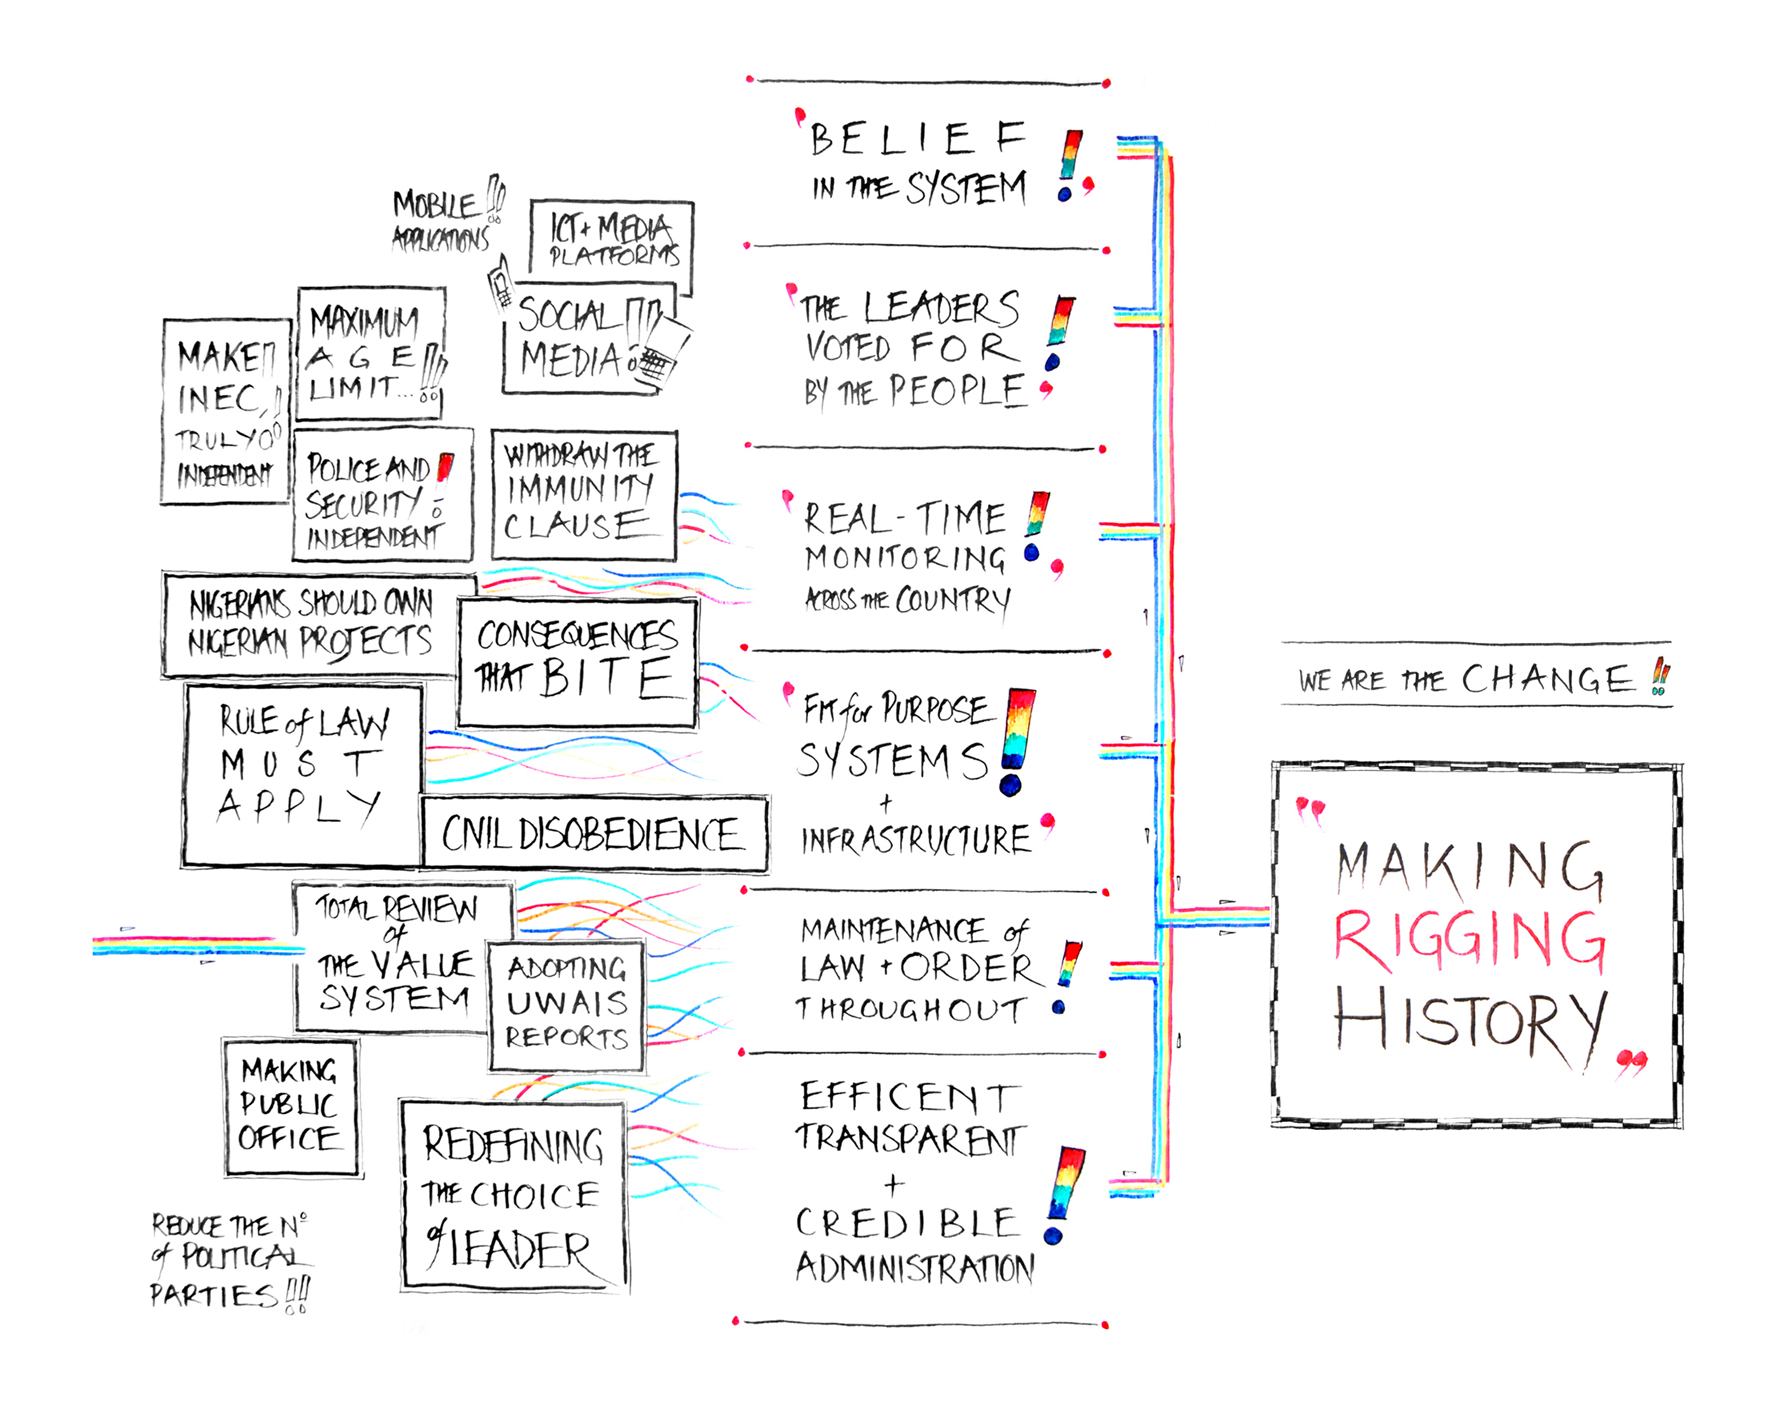 MOBILE!!
APPLICATIONS
ICT + MEDIA
PLATFORMS
SOCIAL!!
MEDIA
MAXIMUM
AGE
LIMIT...!!!
MAKE!!
INEC,
TRULY
INDEPENDENT
POLICE AND!
SECURITY
INDEPENDENT
WITHDRAW THE
IMMUNITY
CLAUSE
NIGERIANS SHOULD OWN
NIGERIAN PROJECTS
CONSEQUENCES
THAT BITE
RULE of LAW
MUST
APPLY
CIVIL DISOBEDIENCE
TOTAL REVIEW
of
THE VALUE
SYSTEM
ADOPTING
UWAIS
REPORTS
MAKING
PUBLIC
OFFICE
REDEFINING
THE CHOICE
of LEADER
REDUCE THE Nº
of POLITICAL
PARTIES!!!
'BELIEF
IN THE SYSTEM!'
'THE LEADERS
VOTED FOR!
BY THE PEOPLE'
'REAL-TIME!
MONITORING
ACROSS THE COUNTRY'
'FIT for PURPOSE
SYSTEMS!
+
INFRASTRUCTURE'
MAINTENANCE of
LAW + ORDER!
THROUGHOUT
EFFICENT
TRANSPARENT
+
CREDIBLE!
ADMINISTRATION
WE ARE THE CHANGE!!
"MAKING
RIGGING
HISTORY"